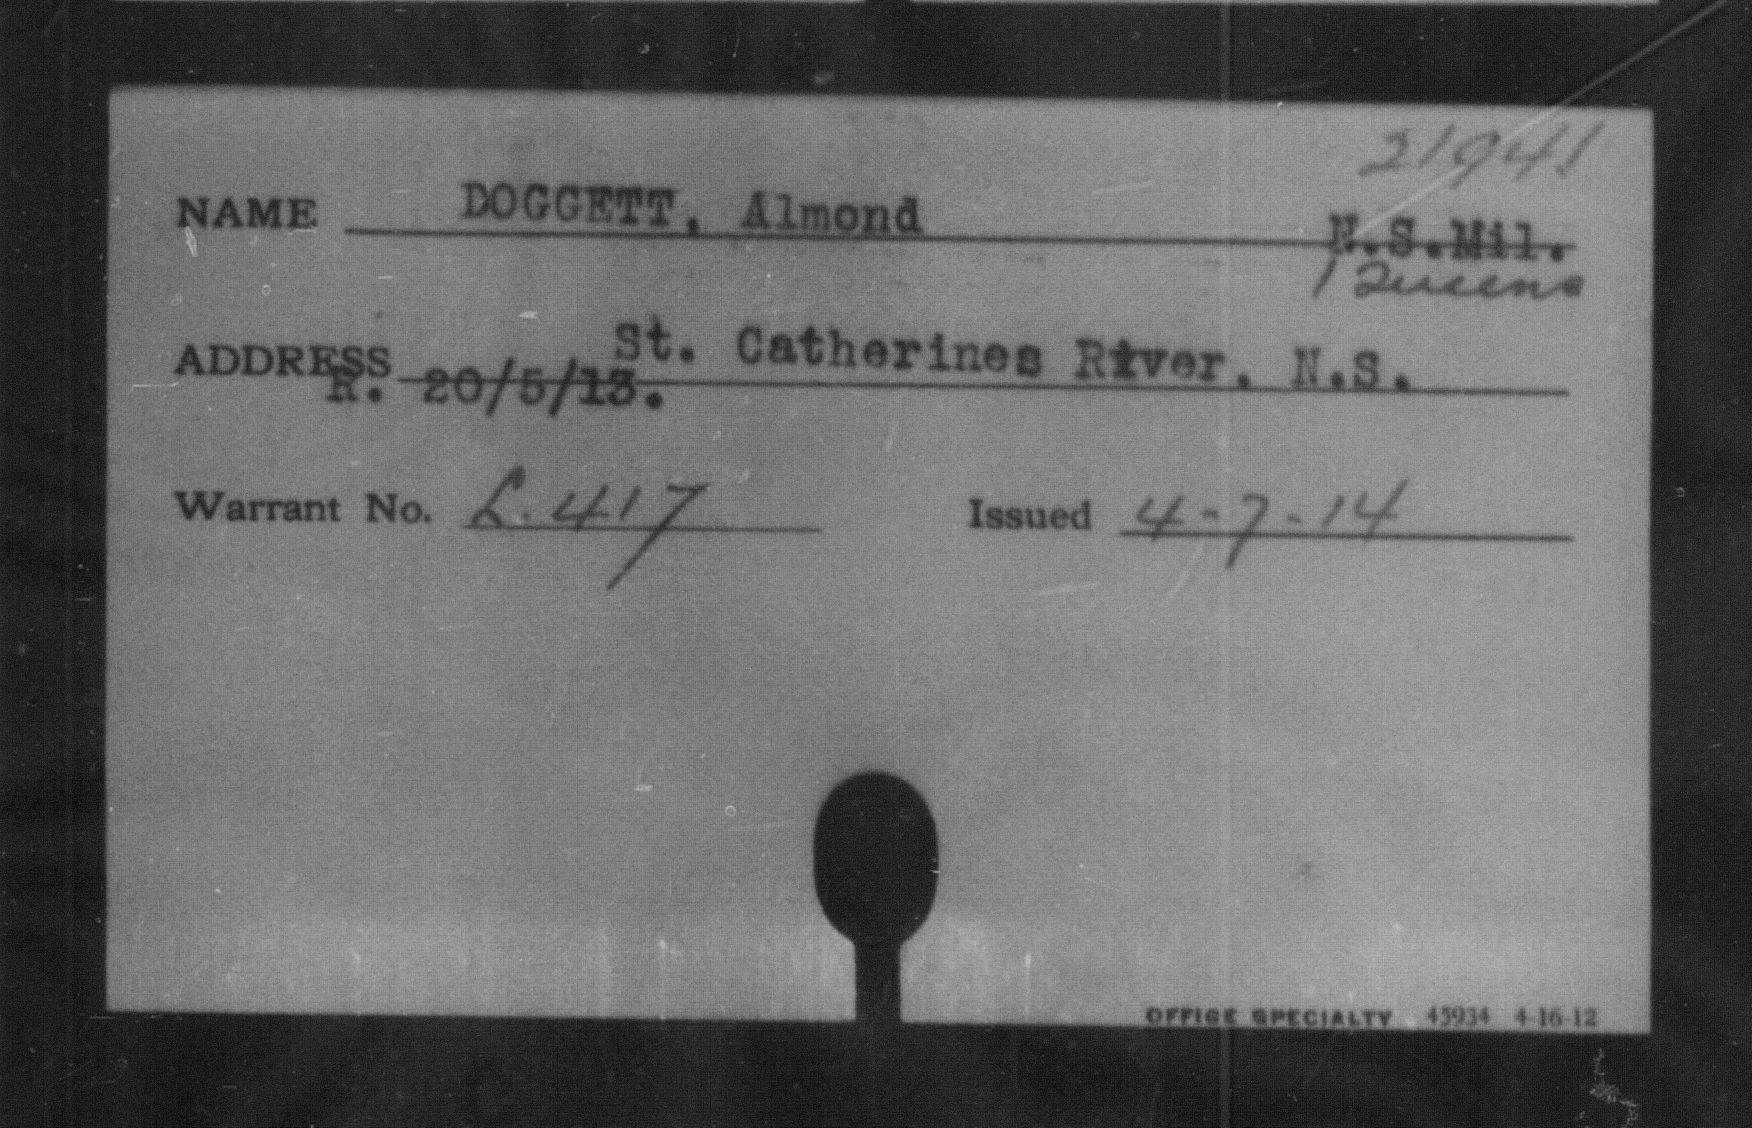 21941
NAME DOGGETT, Almond N.S.Mil.
1 Queens
ADDRESS St. Catherines River, N.S.
R. 20/5/13.
Warrant No. L. 417 Issued 4-7-14
OFFICE SPECIALTY 45934 4-16-12